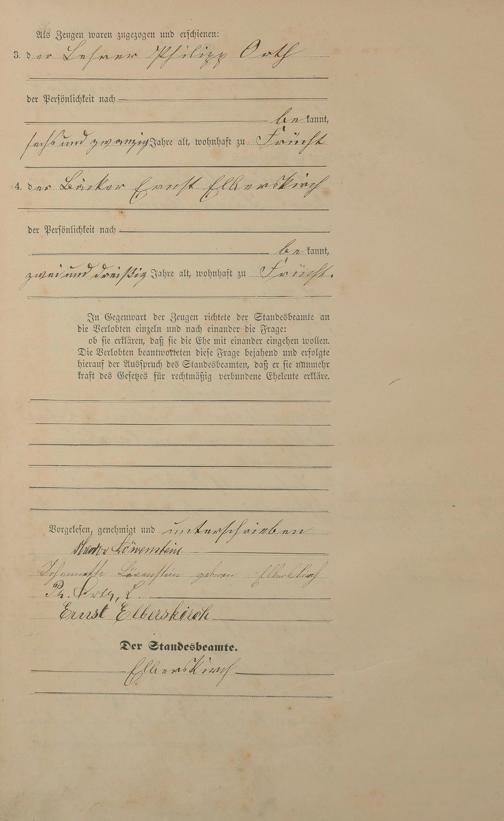 Als Zeugen waren zugezogen und erschienen:
3. der Lehrer Philipp Orth
der Persönlichkeit nach
be kannt,
sechs und zwanzig Jahre alt, wohnhaft zu Frücht
4. der Bäcker Ernst Elberskirch
der Persönlichkeit nach
be kannt,
zwei und dreißig Jahre alt, wohnhaft zu Frücht.
In Gegenwart der Zeugen richtete der Standesbeamte an
die Verlobten einzeln und nach einander die Frage:
ob sie erklären, daß sie die Ehe mit einander eingehen wollen.
Die Verlobten beantworteten diese Frage bejahend und erfolgte
hierauf der Ausspruch des Standesbeamten, daß er sie nunmehr
kraft des Gesetzes für rechtmäßig verbundene Eheleute erkläre.
Vorgelesen, genehmigt und unterschrieben
Löwenstein
Löwenstein geboren Elberskirch
Ph. Orth, L.
Ernst Elberskirch
Der Standesbeamte.
Elberskirch